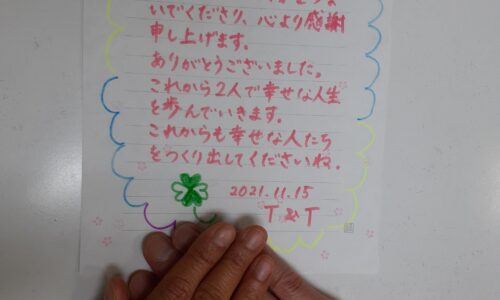 いでくださり、心より感謝
申し上げます。
ありがとうございました。
これから2人で幸せな人生
を歩んでいきます。
これからも幸せな人たち
をつくり出してくださいね。
2021.11.15
T&T